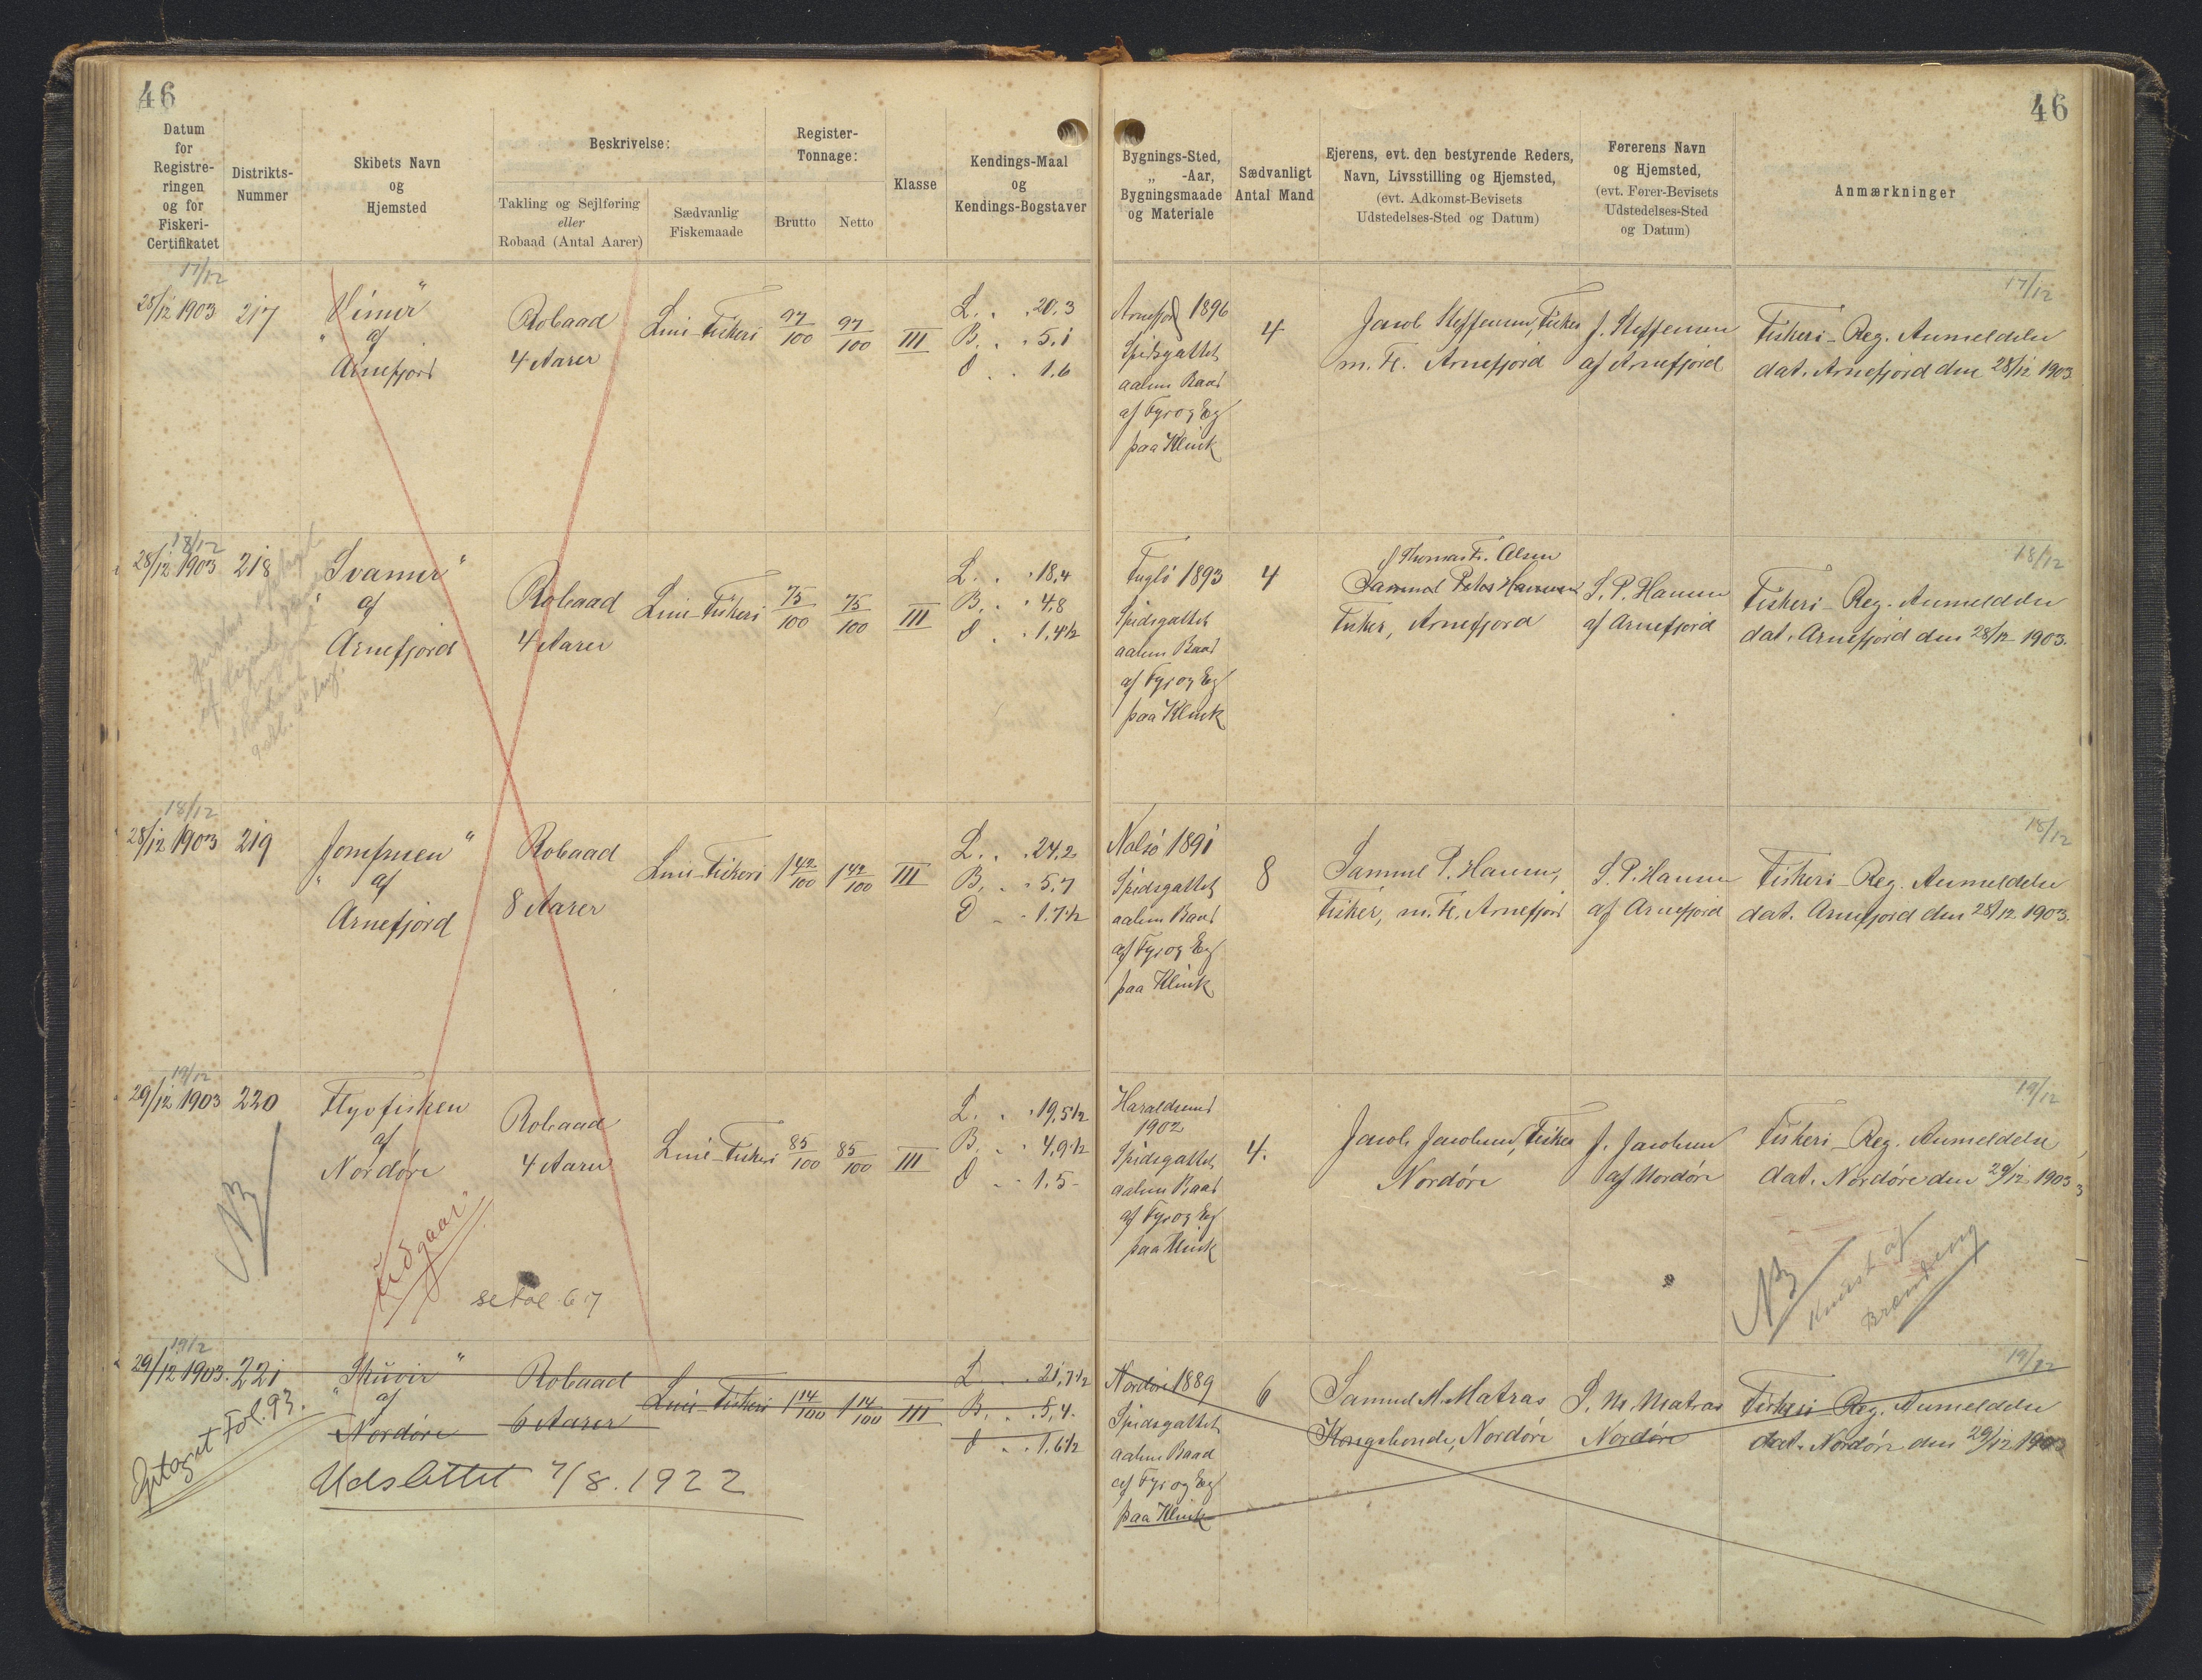 46
46
Datum
for
Registre-
ringen
og for
Fiskeri-
Certifikatet
Distrikts-
Nummer
Skibets Navn
og
Hjemsted
Beskrivelse:
Takling og Sejlføring
eller
Robaad (Antal Aarer)
Sædvanlig
Fiskemaade
Register-
Tonnage:
Brutto
Netto
Klasse
Kendings-Maal
og
Kendings-Bogstaver
Bygnings-Sted,
„ -Aar,
Bygningsmaade
og Materiale
Sædvanligt
Antal Mand
Ejerens, evt. den bestyrende Reders,
Navn, Livsstilling og Hjemsted,
(evt. Adkomst-Bevisets
Udstedelses-Sted og Datum)
Førerens Navn
og Hjemsted,
(evt. Fører-Bevisets
Udstedelses-Sted
og Datum)
Anmærkninger
17/12
28/12 1903
217
„Vimur“
af
Arnefjord
Robaad
4 Aarer
Line-Fiskeri
97/100
97/100
III
L. . . 20.3
B. . . 5.1
D . . 1.6
Arnefjord 1896
Spidsgattet
aaben Baad
af Fyr og Eg
paa Klink
4
Jacob Steffensen, Fisker
m. Fl. Arnefjord
J. Steffensen
af Arnefjord
17/12
Fiskeri-Reg. Anmeldelse
dat. Arnefjord den 28/12 1903
18/12
28/12 1903
218
„Svanur“
af
Arnefjord
Robaad
4 Aarer
Line-Fiskeri
75/100
75/100
III
L. . . 18.4
B. . . 4,8
D . . 1,4½
Fuglö 1893
Spidsgattet
aaben Baad
af Fyr og Eg
paa Klink
4
Thomas Fr. Olsen
Samuel Peter Hansen
Fisker, Arnefjord
S. P. Hansen
af Arnefjord
18/12
Fiskeri-Reg. Anmeldelse
dat. Arnefjord den 28/12 1903.
18/12
28/12 1903
219
„Jomfruen“
af
Arnefjord
Robaad
8 Aarer
Line-Fiskeri
1 42/100
1 42/100
III
L. . . 24.2
B. . . 5.7
D . . 1.7½
Nolsö 1891
Spidsgattet
aaben Baad
af Fyr og Eg
paa Klink
8
Samuel P. Hansen,
Fisker, m. Fl. Arnefjord
S. P. Hansen
af Arnefjord
18/12
Fiskeri-Reg. Anmeldelse
dat. Arnefjord den 28/12 1903.
19/12
29/12 1903
220
Flyvfisken
af
Nordøre
Robaad
4 Aarer
Line-Fiskeri
85/100
85/100
III
L. . . 19,5½
B. . . 4,9½
D . . 1.5-
Haraldsund
1902
Spidsgattet
aaben Baad
af Fyr og Eg
paa Klink
4.
Jacob Jacobsen, Fisker
Nordøre
J. Jacobsen
af Nordøre
19/12
Fiskeri-Reg. Anmeldelse
dat. Nordøre den 29/12 1903
NB
Udgaar
se Fol. 67
NB
Knust af
Brænding
19/12
29/12 1903.
221
„Skúvir“
af
Nordøre
Robaad
6 Aarer
Line-Fiskeri
1 14/100
1 14/100
III
L . . 21,7½
B. . . 5,4.
D . . 1,6½
Nordöre 1889
Spidsgattet
aaben Baad
af Fyr og Eg
paa Klink
6
Samuel M. Matras
Kongsbonde, Nordøre
S. M. Matras
Nordøre
19/12
Fiskeri-Reg. Anmeldelse
dat. Nordøre den 29/12 1903
Optaget Fol. 93.
Udslettet 7/8. 1922